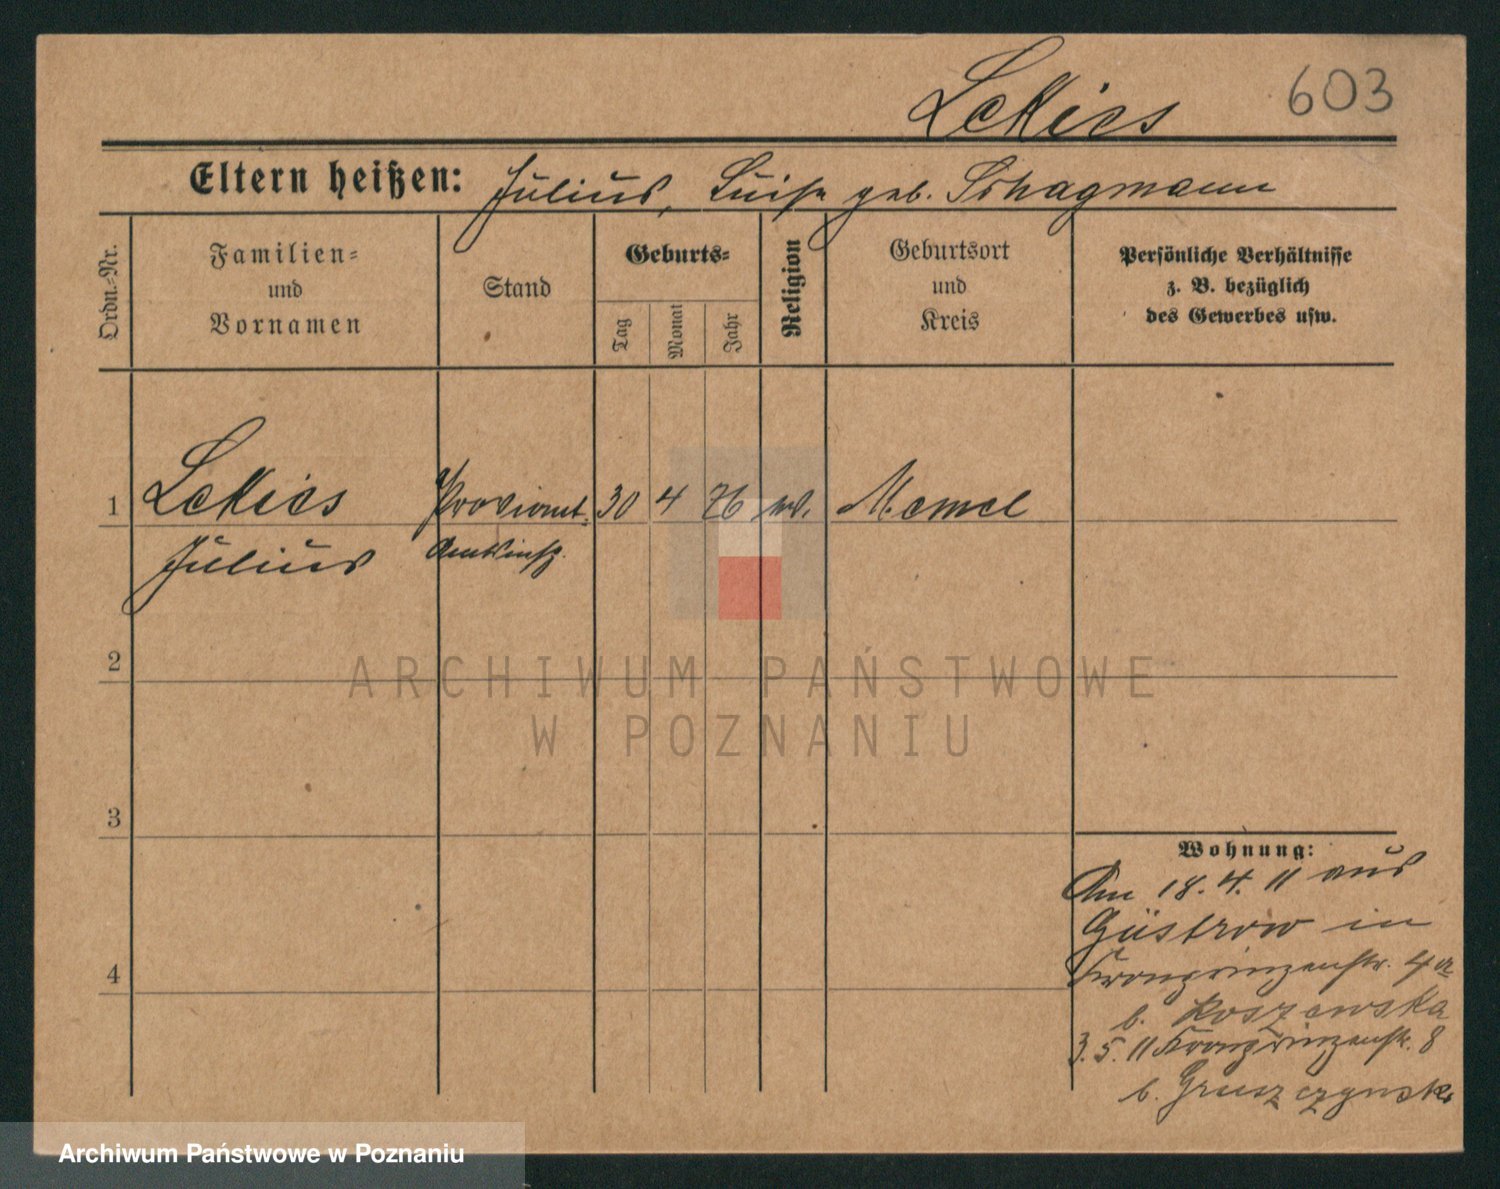 Lekies 603
Eltern heißen: Julius, Luise geb. Schagmann
Ordn.-Nr.
Familien-
und
Vornamen
Stand
Geburts-
Tag
Monat
Jahr
Religion
Geburtsort
und
Kreis
Persönliche Verhältnisse
z. B. bezüglich
des Gewerbes usw.
1 Lekies Proviant- 30 4 76 ev. Memel
Julius
2
ARCHIWUM PAŃSTWOWE
W POZNANIU
3
Wohnung:
Am 18. 4. 11 aus
Güstrow in
4 Kronprinzenstr. 4a
b. Koszewska
3. 5. 11 Kronprinzenstr. 8
b. Gruszczynski
Archiwum Państwowe w Poznaniu